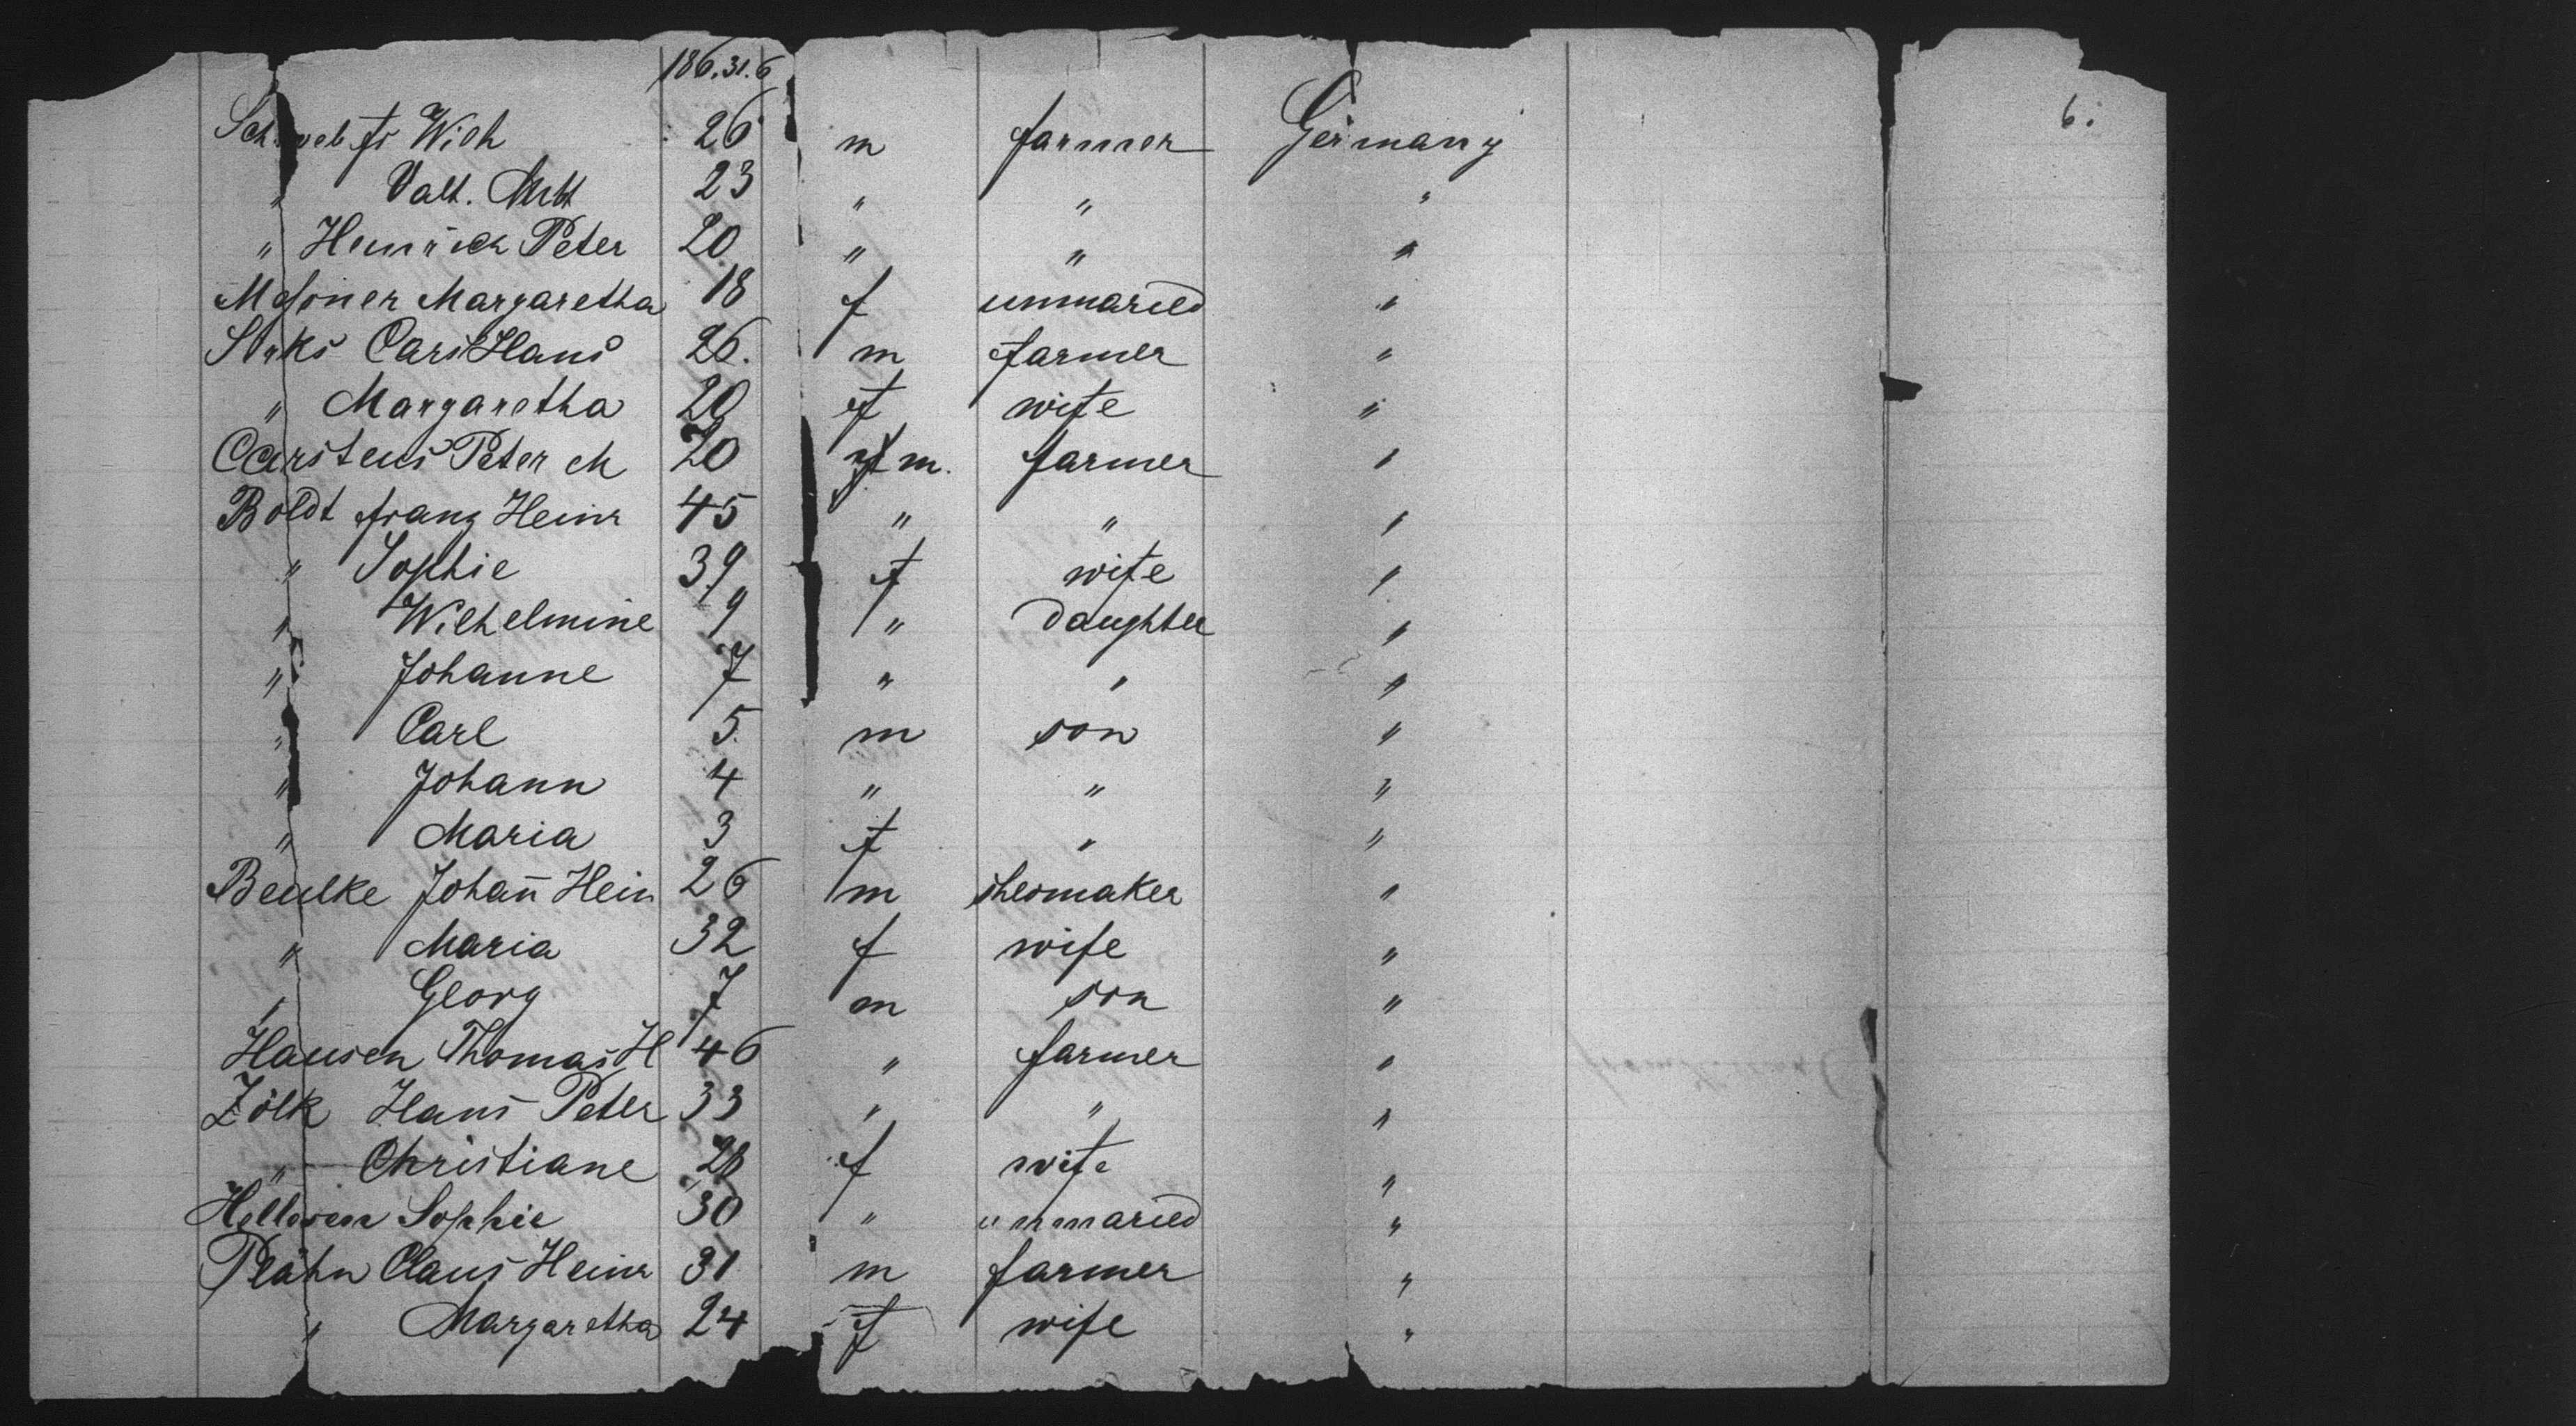 186.31.6
6.
Wilh 26 m farmer Germany
" Valt. 23 " " "
" Heinrich Peter 20 " " "
Margaretha 18 f unmaried "
Hans 26. m farmer "
" Margaretha 20 f wife "
Carstens Peter M 20 m. farmer "
Boldt franz Heinr 45 " " "
" Sophie 39 f wife "
" Wilhelmine 9 " daughter "
" Johanne 7 " " "
" Carl 5. m son "
" Johann 4 " " "
" Maria 3 f " "
Beulke Johan̄ Hein 26 m sheomaker "
" Maria 32 f wife "
" Georg 7 m son "
Hansen Thomas H 46 " farmer "
Zölk Hans Peter 33 " " "
" Christiane f wife "
Sophie 30 " unmaried "
Plähn Claus Heinr 31 m farmer "
" Margaretha 24 f wife "